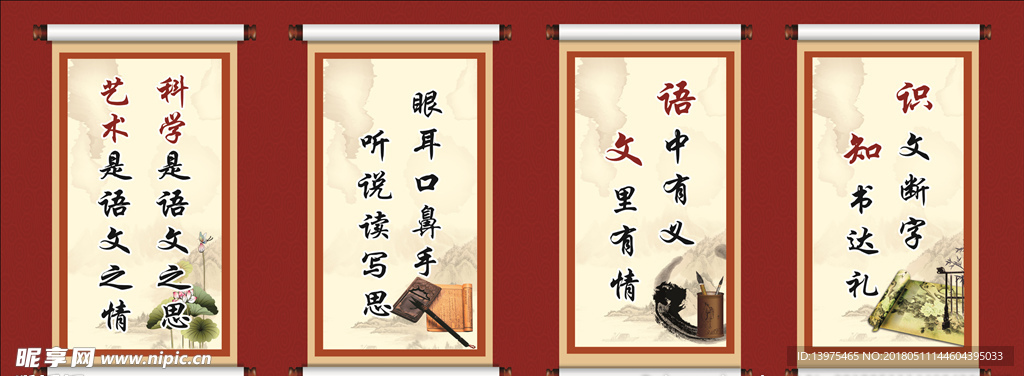 科学是语文之思
艺术是语文之情
眼耳口鼻手
听说读写思
语中有义
文里有情
识文断字
知书达礼
昵享网 www.nipic.cn
ID:13975465 NO:20180511144604395033